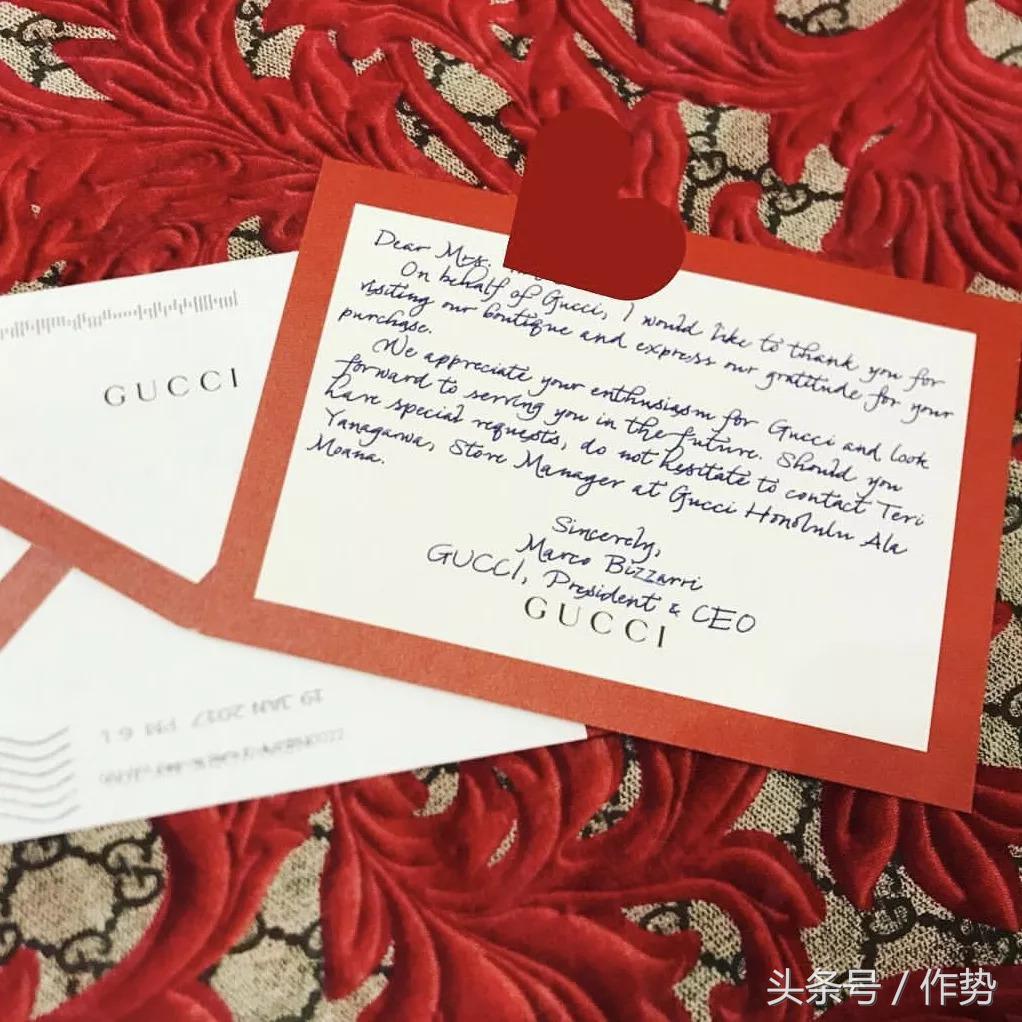 Dear Mrs.
On behalf of Gucci, I would like to thank you for
visiting our boutique and express our gratitude for your
purchase.
We appreciate your enthusiasm for Gucci and look
forward to serving you in the future. Should you
have special requests, do not hesitate to contact Teri
Yanagawa, Store Manager at Gucci Honolulu Ala
Moana.
Sincerely,
Marco Bizzarri
GUCCI, President & CEO
GUCCI
GUCCI
19 JAN 2017 PM 6 1
头条号 / 作势